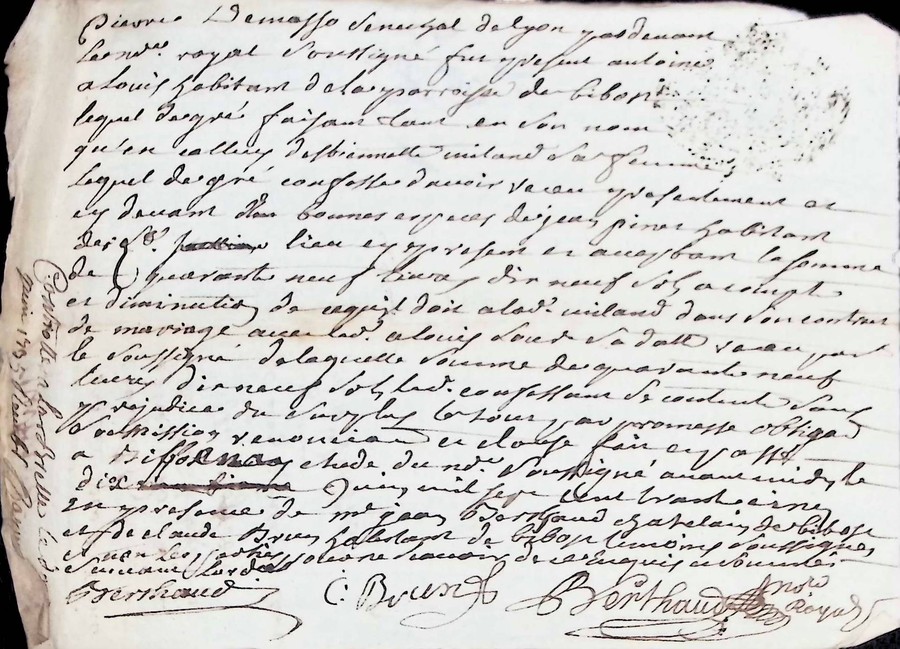 pierre Demasso senechal de lyon pardevant
le nore royal soussigné fut present antoine
alouis habitant de la parroisse de bibost
lequel de gré faisant tant en son nom
qu'en celluy d'estiennette miland sa femme
lequel de gré confesse d'avoir receu presentement et
cy devant en bonnes especes de jean pinet habitant
dud. lieu cy present et acceptant la somme
de quarante neuf livres dix neuf sols a compte
et diminution de ce qu'il doit a lad. miland dans son contrat
de mariage avec led. alouis sous sa datte receu par
le soussigné de laquelle somme de quarante neuf
livres dix neuf sols led. confessant se contente sans
prejudice du surplus le tout par promesse obligaon
soumission renonciaon et clause fait et passé
a estude du nore soussigné avant midy le
dix juin mil sept cent trante cinq
En presence de mre jean Berthaud chatelain de bibost
et de claude Brun habitant de bibost temoins soussignés
et non les parties
scavoir de ce enquis et sommés
Berthaud C. Brun Berthaud nore Royal
Controllé a larbresle le dix
juin 1735